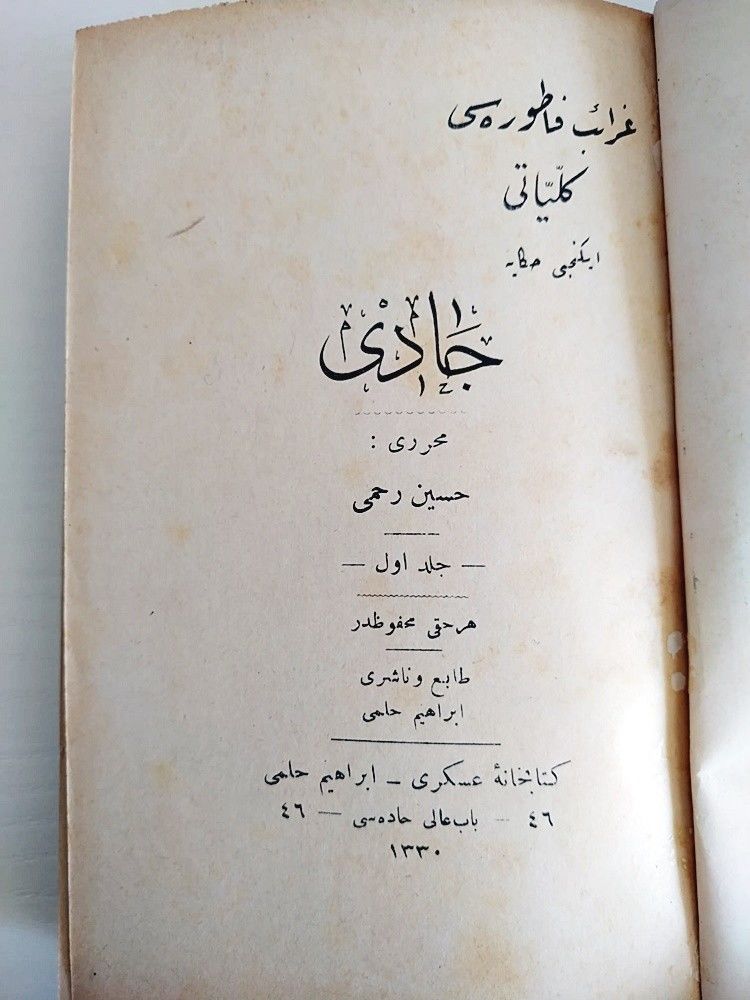 غرائب فاطوره‌سی
كلّيّاتی
ايكنجی حكايه
جادی
محرری :
حسين رحمی
— جلد اول —
هر حقی محفوظدر
طابع و ناشری
ابراهيم حلمی
كتابخانۀ عسكری – ابراهيم حلمی
٤٦ — باب عالی جاده‌سی — ٤٦
١٣٣٠